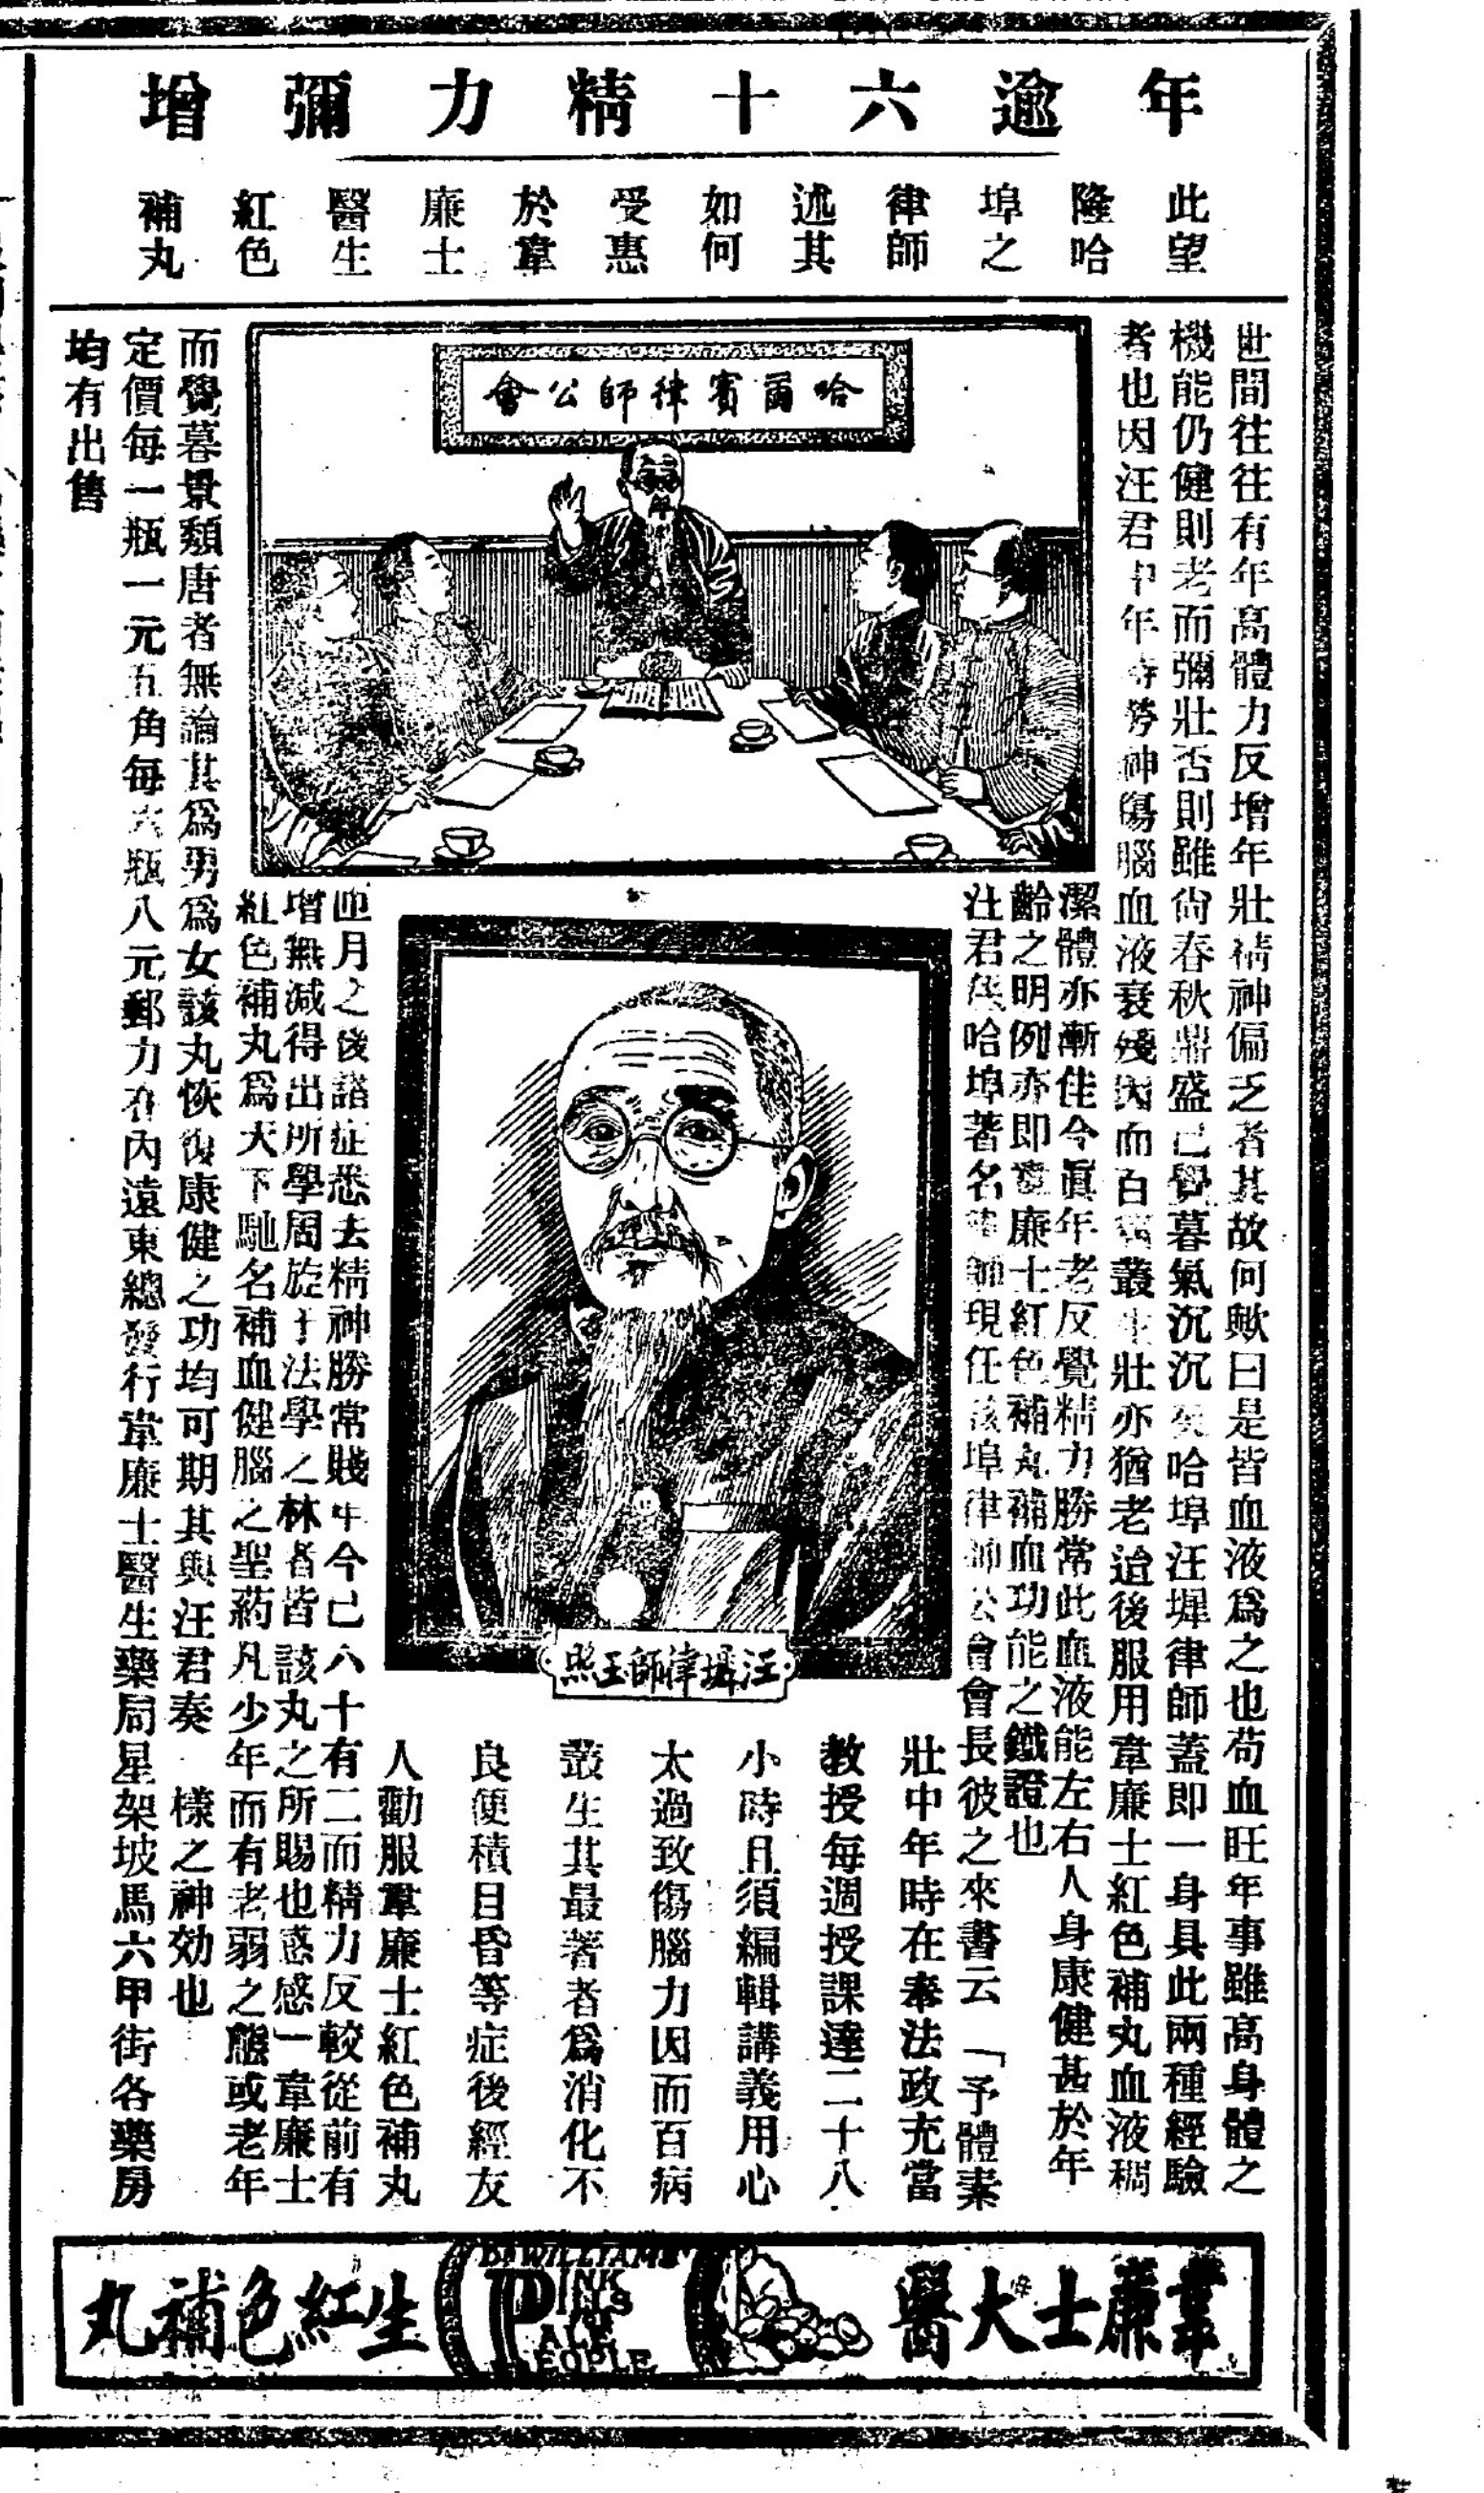 年逾六十精力彌增
此望
隆哈
埠之
律師
述其
如何
受惠
於韋
廉士
醫生
紅色
補丸
世間往往有年高體力反增年壯精神偏乏者其故何歟曰是皆血液爲之也苟血旺年事雖高身體之
機能仍健則老而彌壯否則雖尙春秋鼎盛已覺暮氣沉沉矣哈埠汪墀律師蓋即一身具此兩種經驗
者也因汪君中年時勞神傷腦血液衰殘因而百病叢生壯亦猶老迨後服用韋廉士紅色補丸血液稠
哈爾賓律師公會
潔體亦漸佳今眞年老反覺精力勝常此血液能左右人身康健甚於年
齡之明例亦即韋廉士紅色補丸補血功能之鐵證也
汪君係哈埠著名律師現任該埠律師公會會長彼之來書云「予體素
汪墀律師玉照
壯中年時在奉法政充當
教授每週授課達二十八
小時且須編輯講義用心
太過致傷腦力因而百病
叢生其最著者爲消化不
良便積目昏等症後經友
人勸服韋廉士紅色補丸
匝月之後諸症悉去精神勝常賤年今已六十有二而精力反較從前有
增無減得出所學周旋于法學之林者皆該丸之所賜也惑感一韋廉士
紅色補丸爲天下馳名補血健腦之聖葯凡少年而有老弱之態或老年
而覺暮景頹唐者無論其爲男爲女該丸恢復康健之功均可期其與汪君奏 樣之神効也
定價每一瓶一元五角每六瓶八元郵力在內遠東總發行韋廉士醫生藥局星架坡馬六甲街各藥房
均有出售
韋廉士大醫生紅色補丸
DR WILLIAMS
PINK
PILLS
PALE
PEOPLE